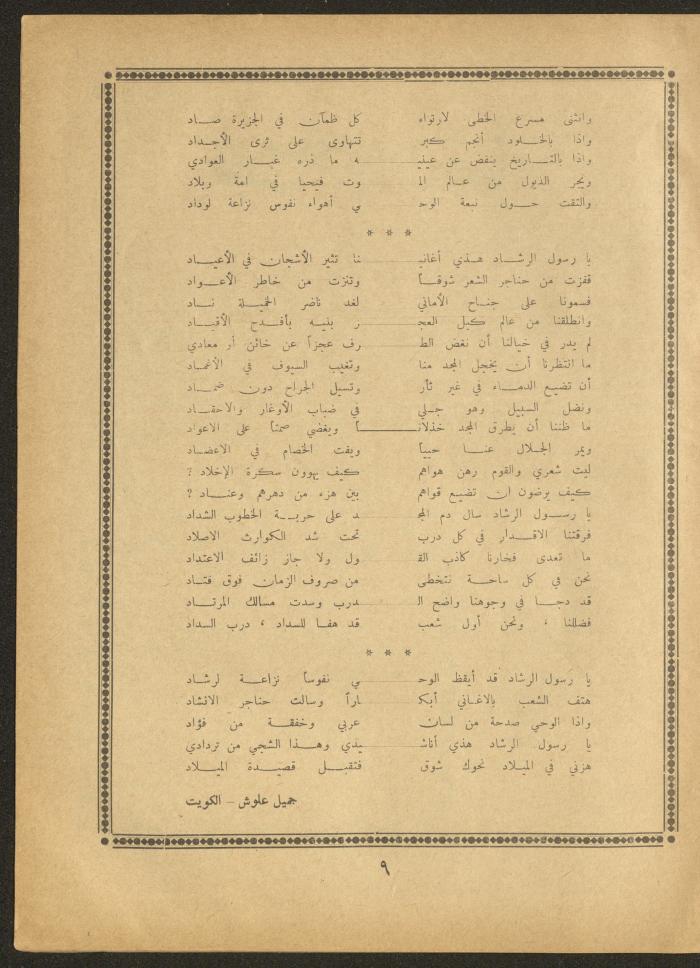 وانثنى مسرع الخطى لارتواء كل ظمآن في الجزيرة صاد
واذا بالخلود أنجم كبر تتهاوى على ثرى الأجداد
واذا بالتاريخ ينفض عن عينيه ما ذره غبار العوادي
ويجر الذبول من عالم الموت فيحيا في امة وبلاد
والتقت حول نبعة الوحي أهواء نفوس نزاعة لوداد
* * *
يا رسول الرشاد هذي أغانينا تثير الأشجان في الأعياد
قفزت من حناجر الشعر شوقاً وتنزت من خاطر الأعواد
فسمونا على جناح الأماني لغد ناضر الخميلة ناد
وانطلقنا من عالم كبل العجر بنيه بأفدح الأقياد
لم يدر في خيالنا أن نغض الطرف عجزاً عن خائن أو معادي
ما انتظرنا أن يخجل المجد منا وتغيب السيوف في الأغماد
أن تضيع الدماء في غير ثأر وتسيل الجراح دون ضماد
ونضل السبيل وهو جلي في ضباب الأوغار والاحقاد
ما ظننا أن يطرق المجد خذلاناً ويغضي صمتاً على الاعواد
ويمر الجلال عنا حيياً ويفت الخصام في الاعضاد
ليت شعري والقوم رهن هواهم كيف يهوون سكرة الإخلاد ؟
كيف يرضون ان تضيع قواهم بين هزء من دهرهم وعناد ؟
يا رسول الرشاد سال دم المجد على حربة الخطوب الشداد
فرقتنا الاقدار في كل درب تحت شد الكوارث الاصلاد
ما تعدى فخارنا كاذب القول ولا جاز زائف الاعتداد
نحن في كل ساحة نتخطى من صروف الزمان فوق قتاد
قد دجا في وجوهنا واضح الدرب وسدت مسالك المرتاد
فضللنا ، ونحن أول شعب قد هفا للسداد ، درب السداد
* * *
يا رسول الرشاد قد أيقظ الوحي نفوساً نزاعة لرشاد
هتف الشعب بالاغاني أبكاراً وسالت حناجر الانشاد
واذا الوحي صدحة من لسان عربي وخفقة من فؤاد
يا رسول الرشاد هذي أناشيدي وهذا الشجي من تردادي
هزني في الميلاد نحوك شوق فتقبل قصيدة الميلاد
جميل علوش - الكويت
٩